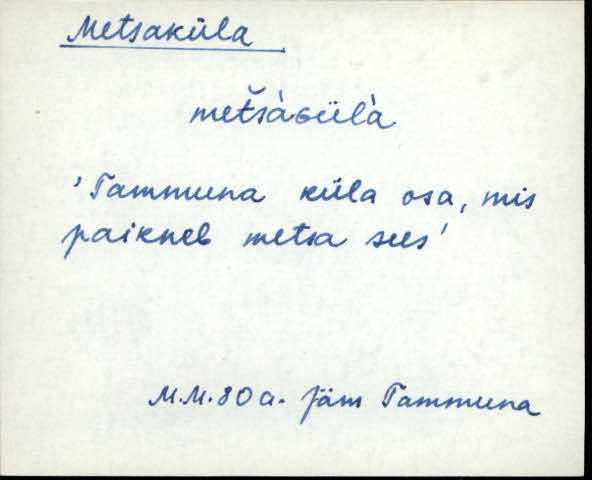 Metsaküla
metšàɢülà
'Tammuna küla osa, mis
paikneb metsa sees'
M.M. 80 a. Jäm Tammuna